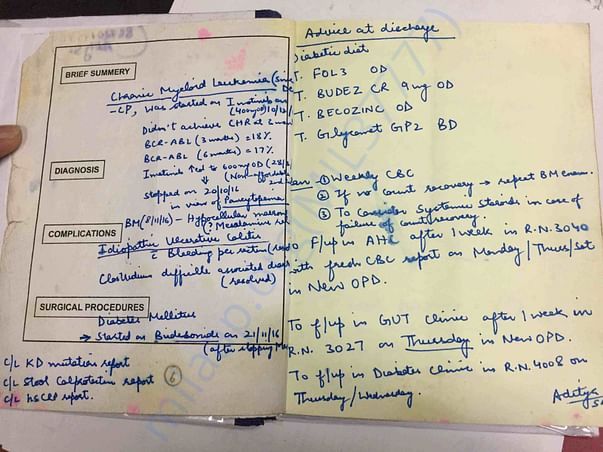 BRIEF SUMMERY
Chronic Myeloid Leukemia
-CP, was started on Imatinib
(400mg OD)
Didn't achieve CHR at 3
BCR-ABL (3 months) = 18%
BCR-ABL (6 months) = 17%
Imatinib ↑ed to 600mg OD
DIAGNOSIS
stopped on 20/10/16
in view of Pancytopenia
BM (8/11/16) - Hypocellular marrow
COMPLICATIONS
Idiopathic Ulcerative Colitis
c Bleeding per rectum
Clostridium difficile associated
(resolved)
SURGICAL PROCEDURES
Diabetes Mellitus
→ Started on Budesonide on 21/11/16
(after stopping
C/L KD mutation report
C/L Stool Calprotectin report
C/L hSCRP report.
6
Advice at discharge
Diabetic diet
T. FOL3 OD
T. BUDEZ CR 9mg OD
T. BECOZINC OD
T. Glycomet GP2 BD
① Weekly CBC
② If no count recovery → repeat BM exam.
③ To Consider Systemic Steroids in case of
failure of count recovery.
F/up in AHC after 1 week in R.N. 3040
with fresh CBC report on Monday/Thurs/Sat
in New OPD.
To f/up in GUT Clinic after 1 week in
R.N. 3027 on Thursday in New OPD.
To f/up in Diabetes Clinic in R.N. 4008 on
Thursday/Wednesday.
Aditya